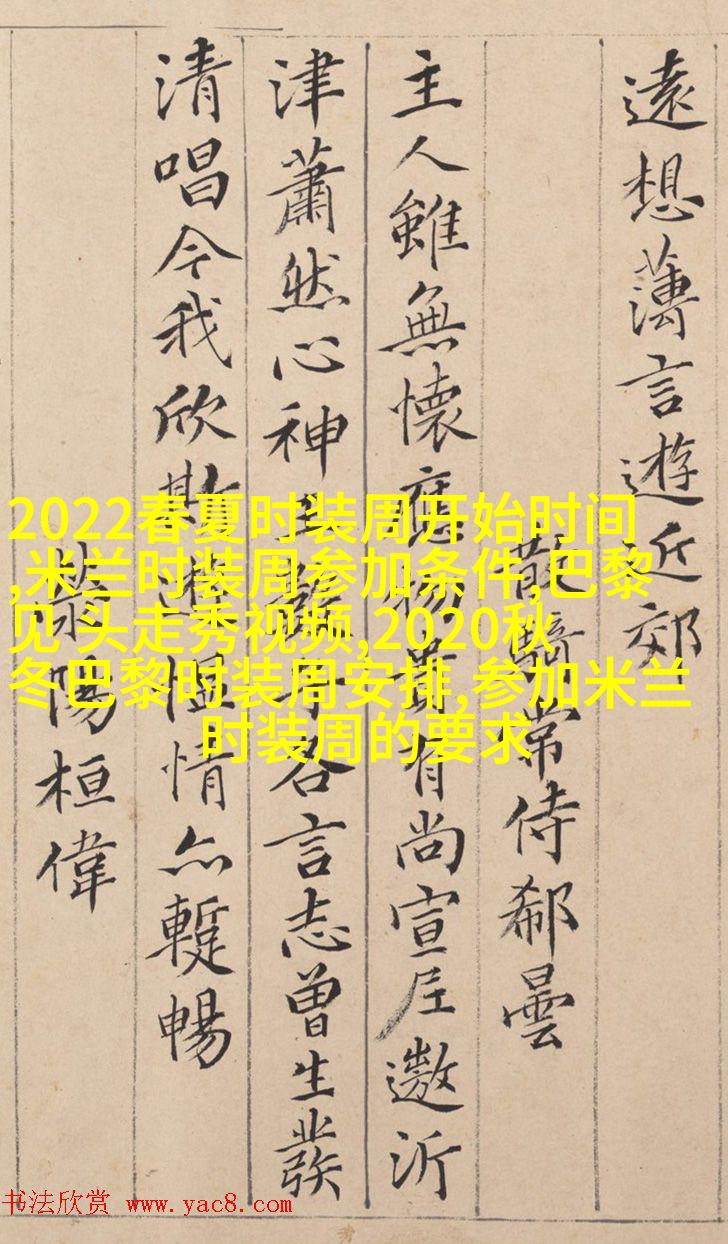 遠想薄言遊近郊
散騎常侍郗曇
主人雖無懷應物貴有尚宣尼遨沂
津蕭然心神王數子各言志曾生發
清唱今我欣斯遊慍情亦暫暢
滎陽桓偉
2022春夏时装周开始时间
,米兰时装周参加条件,巴黎
见 头走秀视频,2020秋
冬巴黎时装周安排,参加米兰
时装周的要求
书法欣赏 www.yac8.com